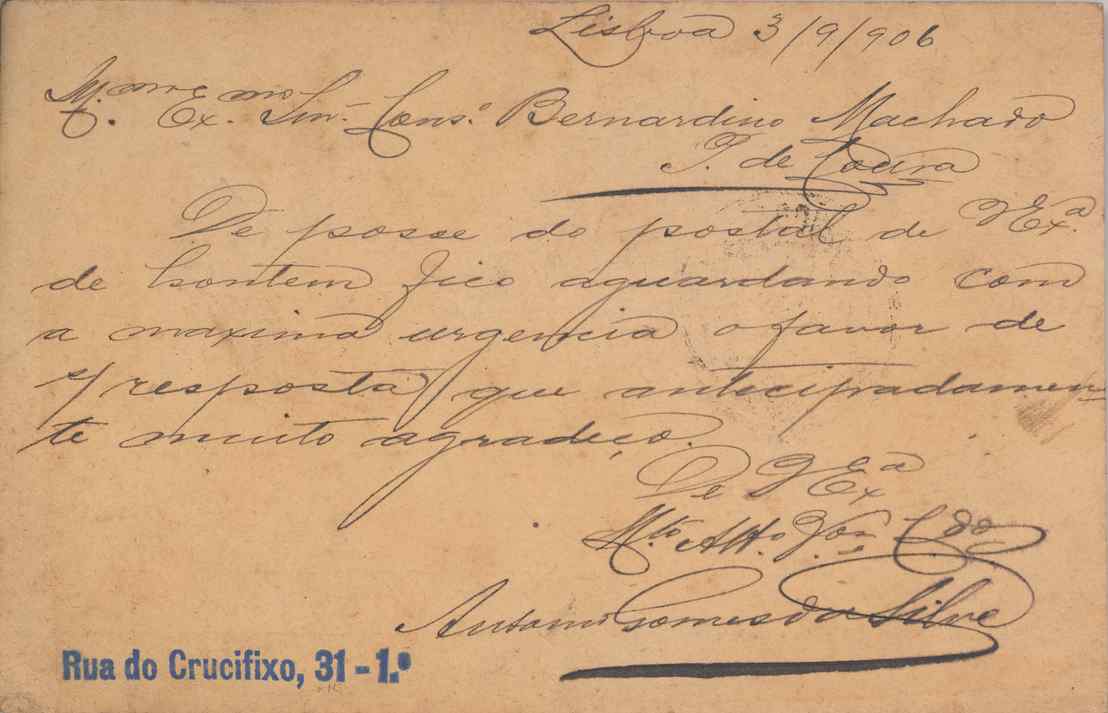 Lisboa 3/9/906
Illmo e Exmo Snr. Cons.º Bernardino Machado
P. de Coura
De posse do postal de V Ex.ª
de hontem fico aguardando com
a maxima urgencia o favor de
s/ resposta que antecipadamen-
te muito agradeço.
De V Exª
Mto Atto Vor Cdo
Antonio Gomes da Silva
Rua do Crucifixo, 31 - 1.º